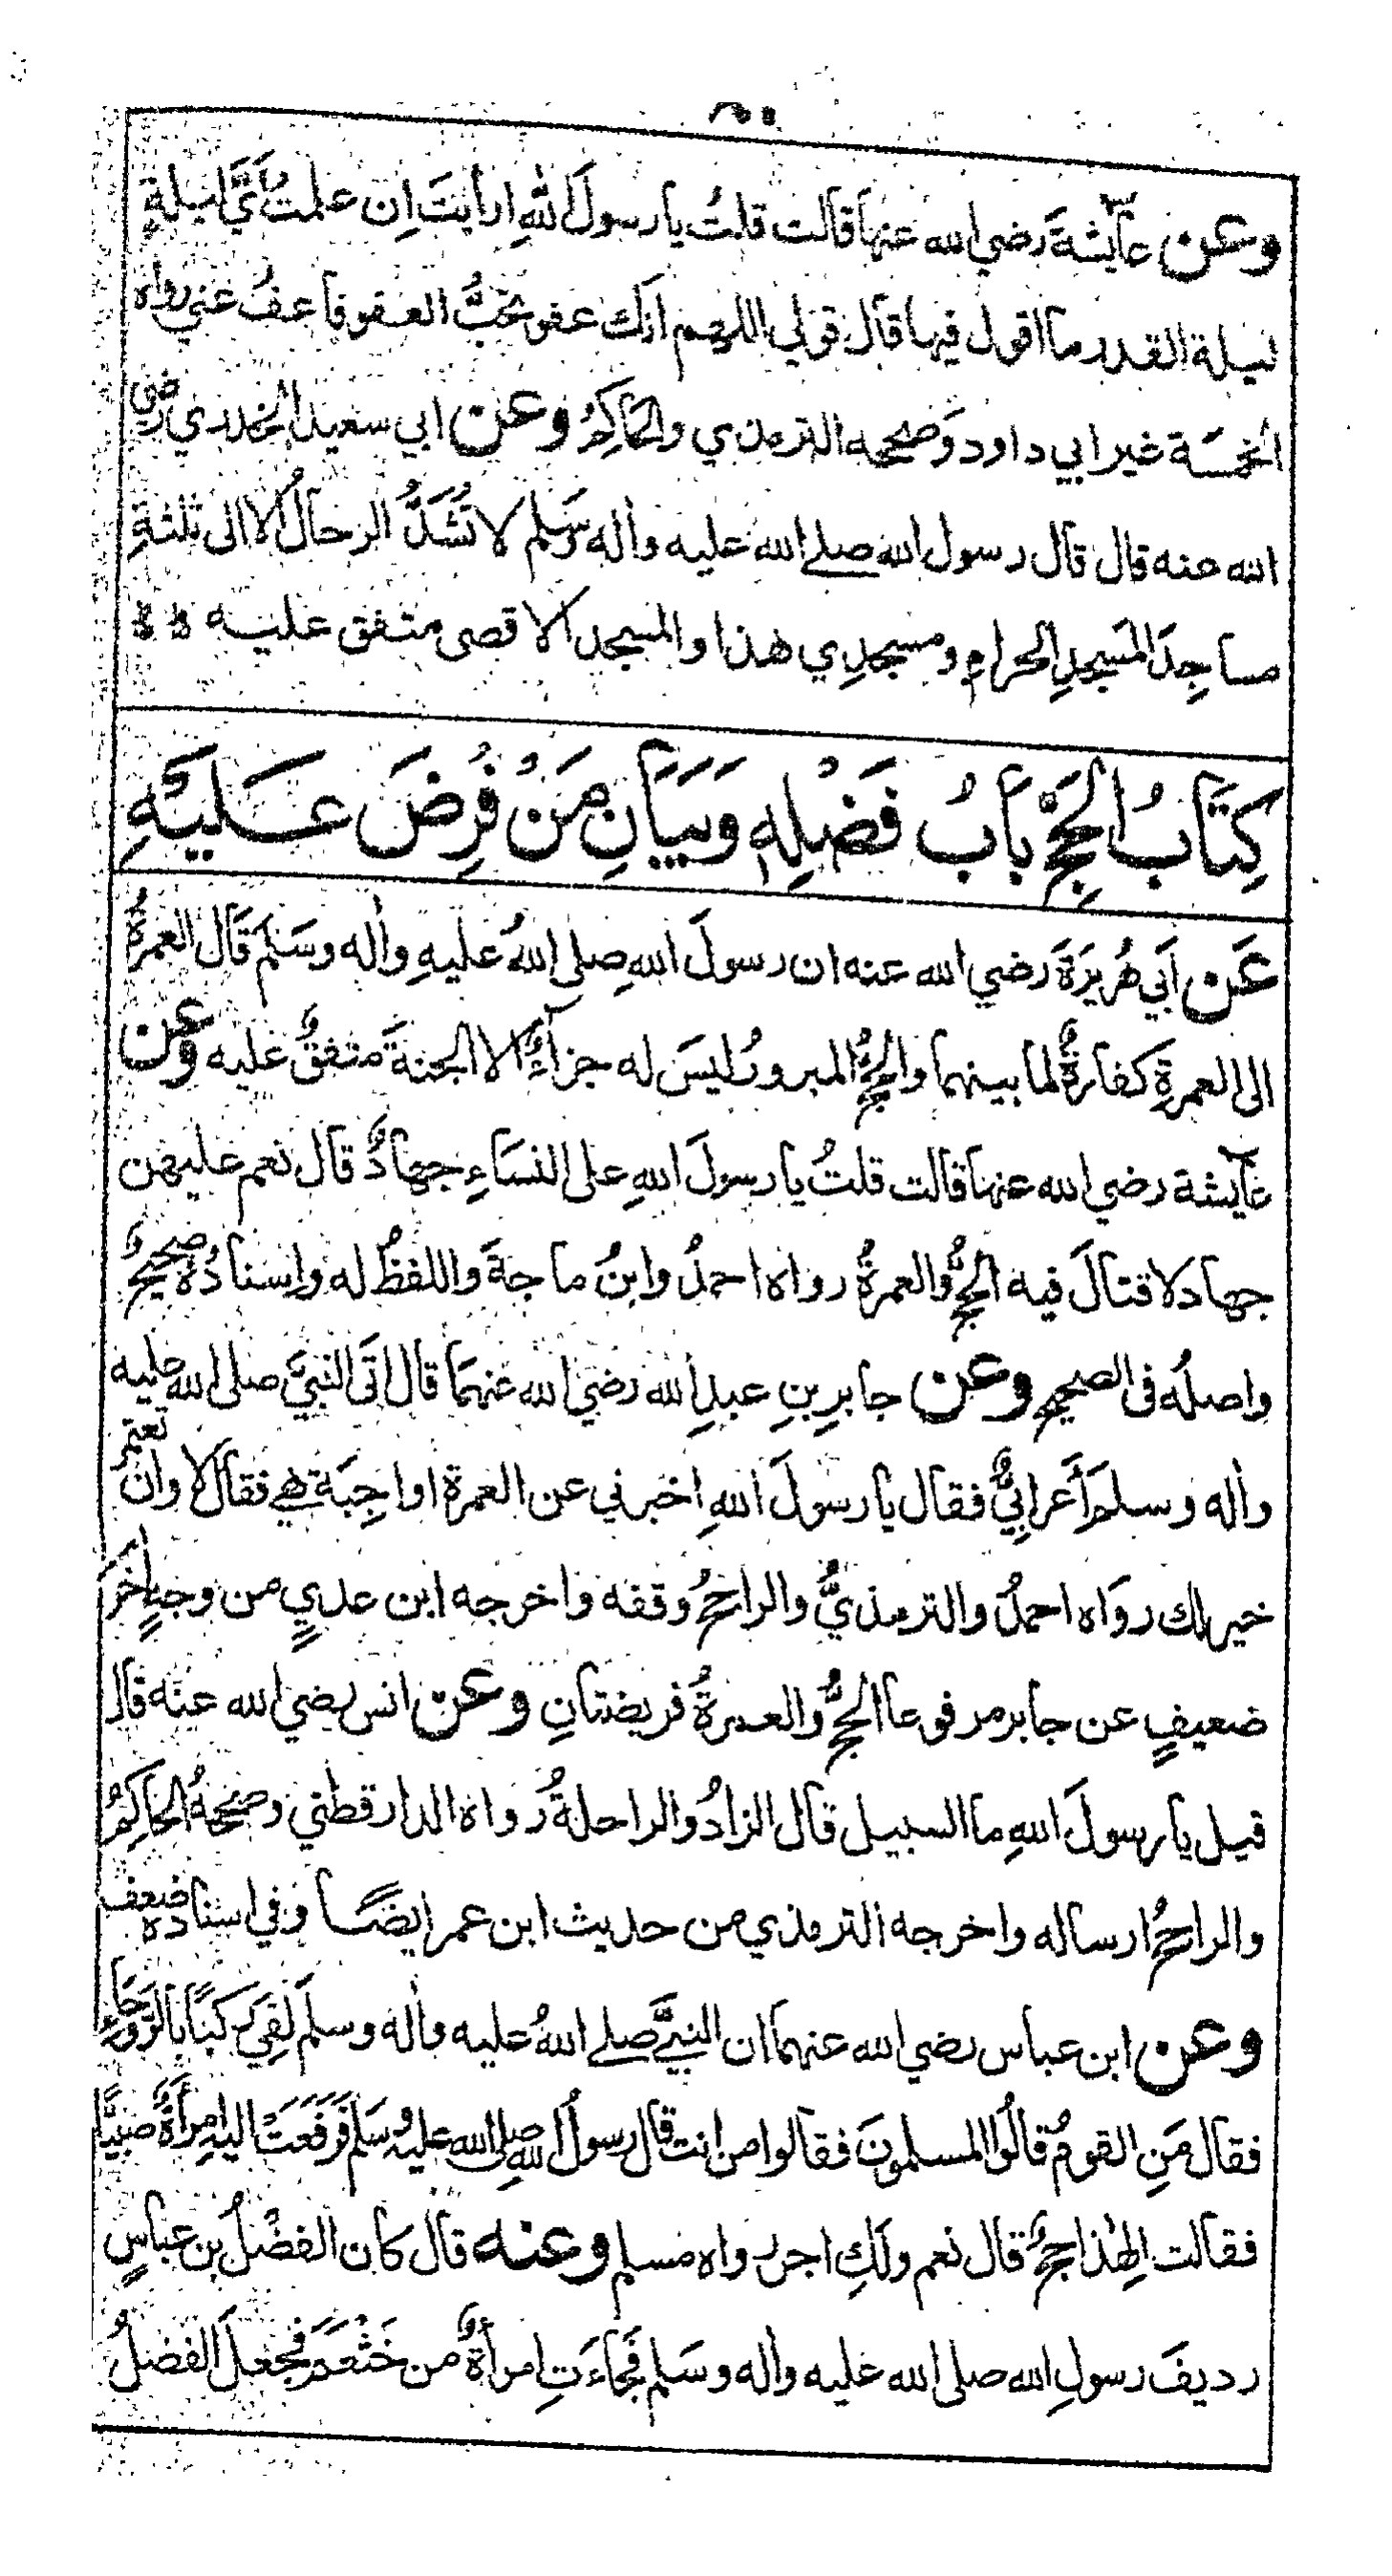 وعن عآيشةَ رضي الله عنها قالت قلتُ يا رسولَ اللهِ ارأيتَ اِن علمتُ اَيَّ ليلةٍ
ليلة القدر ما اقول فيها قال قولي اللهم انك عفو تحبُّ العفو فاعفُ عني رواه
الخمسَة غير ابي داود وَصححه الترمذي والحَاكِمُ وعن ابي سعيد الخدري رضي
الله عنه قال قال رسول الله صلے الله عليه واٰله وَسَلم لا تُشَدُّ الرحالُ الا الى ثلثةِ
مساجِدَ المَسجدِ الحرامِ ومسجدِي هذا والمسجد الاقصى متفق عليه
كِتَابُ الحَجِّ بَابُ فَضْلِهٖ وَبَيَانِ مَنْ فُرِضَ عَلَيْهِ
عَن اَبي هُريرَةَ رضي الله عنه ان رسولَ اللهِ صلى اللهُ عليهِ واٰله وسَلمَ قَال العمرةُ
الى العمرةِ كفارةٌ لما بينهما والحجُّ المبرورُ ليسَ له جزآءٌ الا الجنةَ متفقٌ عليه وعن
عآيشة رضي الله عنها قالت قلتُ يا رسولَ اللهِ على النسَاءِ جهادٌ قال نعم عليهن
جهاد لا قتالَ فيه الحجُّ والعمرةُ رواه احمدُ وابنُ ماجةَ واللفظُ له واِسنادُهٗ صحيحٌ
واصلُه فى الصحيح وعن جابرِ بنِ عبدِ الله رضي الله عنهمَا قال اَتَى النبيَّ صلى الله عليه
واٰله وسلم اَعرابيٌّ فقال يا رسولَ اللهِ اخبرني عن العمرة اواجِبَة هي فقال لا وان تعتمر
خير لك روَاه احمدُ والترمذيُّ والراجحُ وقفه واخرجه ابن عديٍ من وجهٍ اٰخرَ
ضعيفٍ عن جابر مرفوعا الحجُّ والعمرةُ فريضتانِ وعن انس رضي الله عنه قال
قيل يا رسولَ اللهِ ما السبيل قال الزادُ والراحلةُ رواه الدارقطني وصححهُ الحاكِمُ
والراجحُ ارساله واخرجه الترمذي من حديث ابن عمر ايضًا وفي اسناده ضعف
وعن ابن عباس رضي الله عنهما ان النبيَّ صلے اللهُ عليه واٰله وسلمَ لقيَ ركبًا بالرَّوحَاءِ
فقال مَنِ القومُ قالُوا المسلمونَ فقالوا من انت قال رسولُ اللهِ صلى الله عليه وسلم فَرَفَعَتْ اليه امرأةٌ صبيًّا
فقالت اَلِهٰذا حجٌّ قال نعم ولَكِ اجر رواه مسلم وعنه قال كان الفضْلُ بن عباسٍ
رديفَ رسولِ الله صلى الله عليه واٰله وسَلم فَجَاءَتِ امرأةٌ من خَثْعَمَ فجعلَ الفضلُ